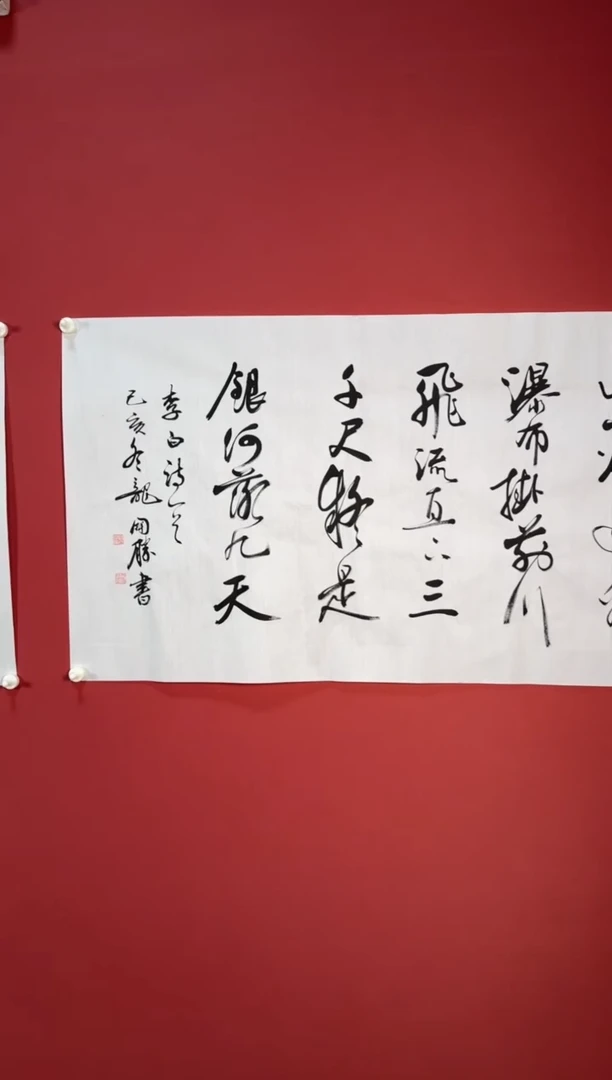 瀑布掛前川
飛流直下三
千尺疑是
銀河落九天
李白詩一首
己亥冬龍開勝書